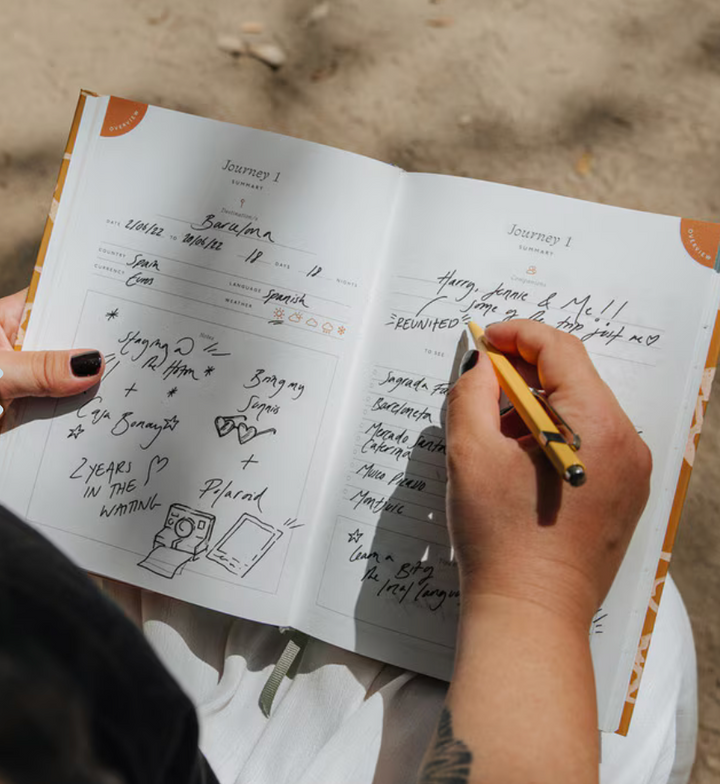 OVERVIEW
Journey 1
SUMMARY
Destination/s
Barcelona
DATE 2/06/22 TO 20/06/22 18 DAYS 18 NIGHTS
COUNTRY Spain LANGUAGE Spanish
CURRENCY Euros WEATHER
Notes
Staying @
the Hoxton
+
Casa Bonay
2 YEARS
IN THE
WAITING
Bring my
Sunnis
+
Polaroid
OVERVIEW
Journey 1
SUMMARY
Companions
Harry, Jennie & Me!!
some of the trip just me
REUNITED
TO SEE
Sagrada
Barceloneta
Mercado Santa
Caterina
Museo Picasso
Montjuic
Learn a Bit of
the local